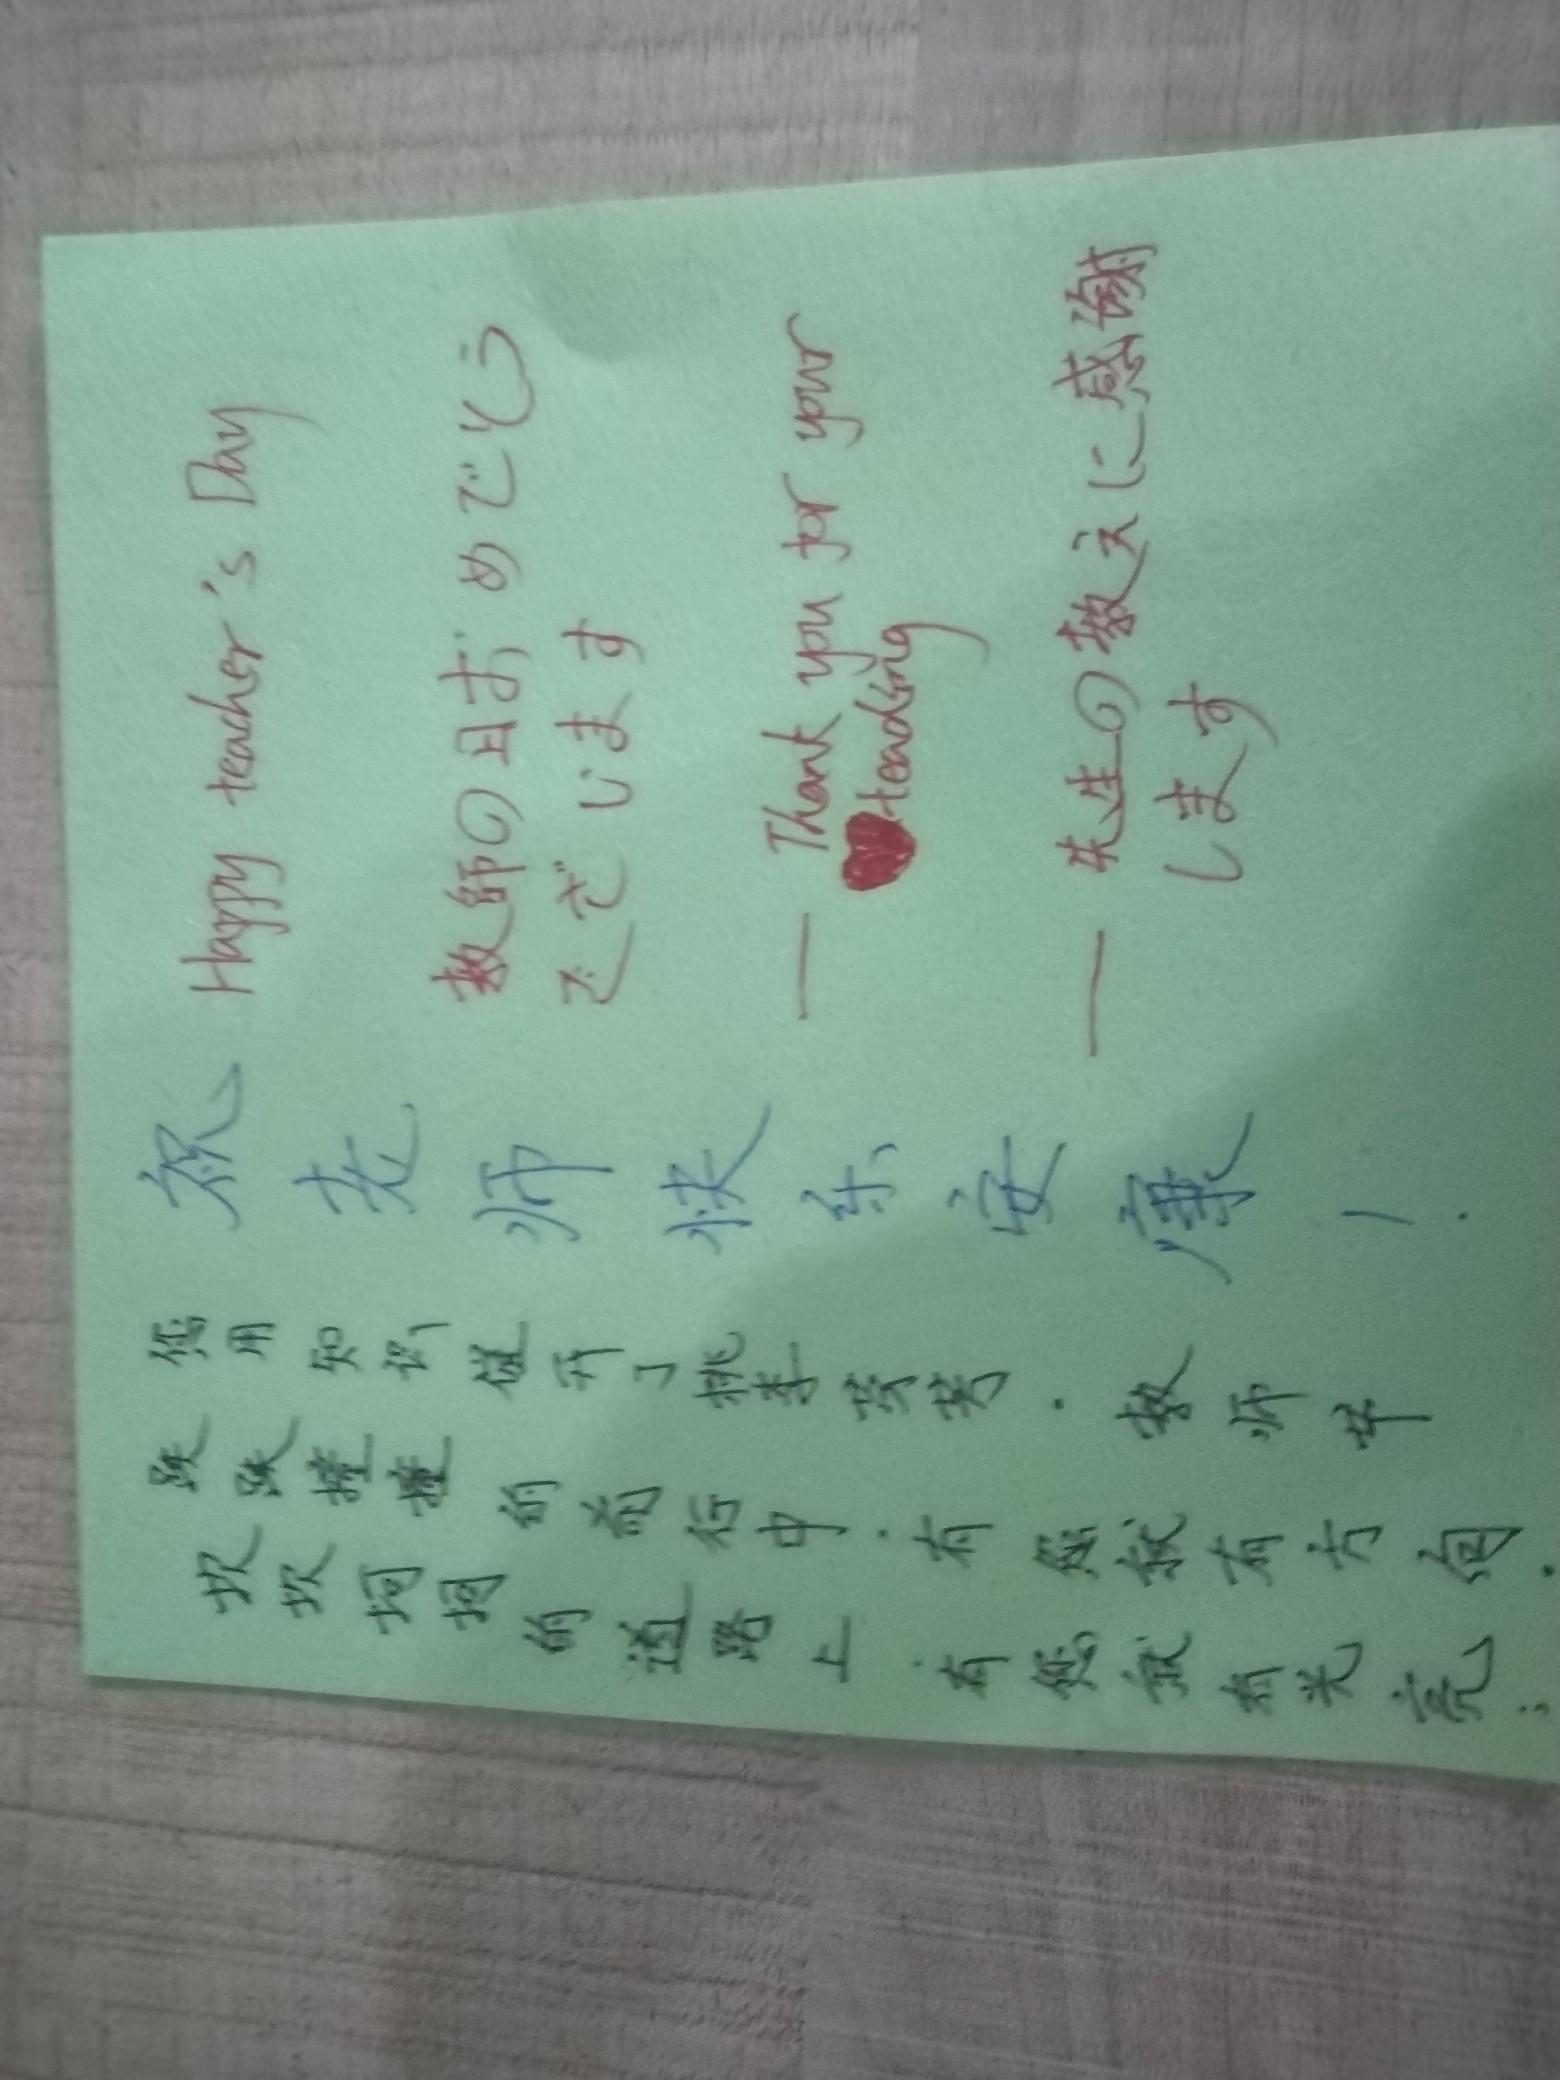 坎坎坷坷的道路上,有您就有光亮;
跌跌撞撞的前行中,有您就有方向.
您用知识催开了桃李芬芳.教师节
祝老师快乐安康!
Happy teacher's Day
教師の日おめでとう
ございます
— Thank you for your
teaching
— 先生の教えに感謝
します